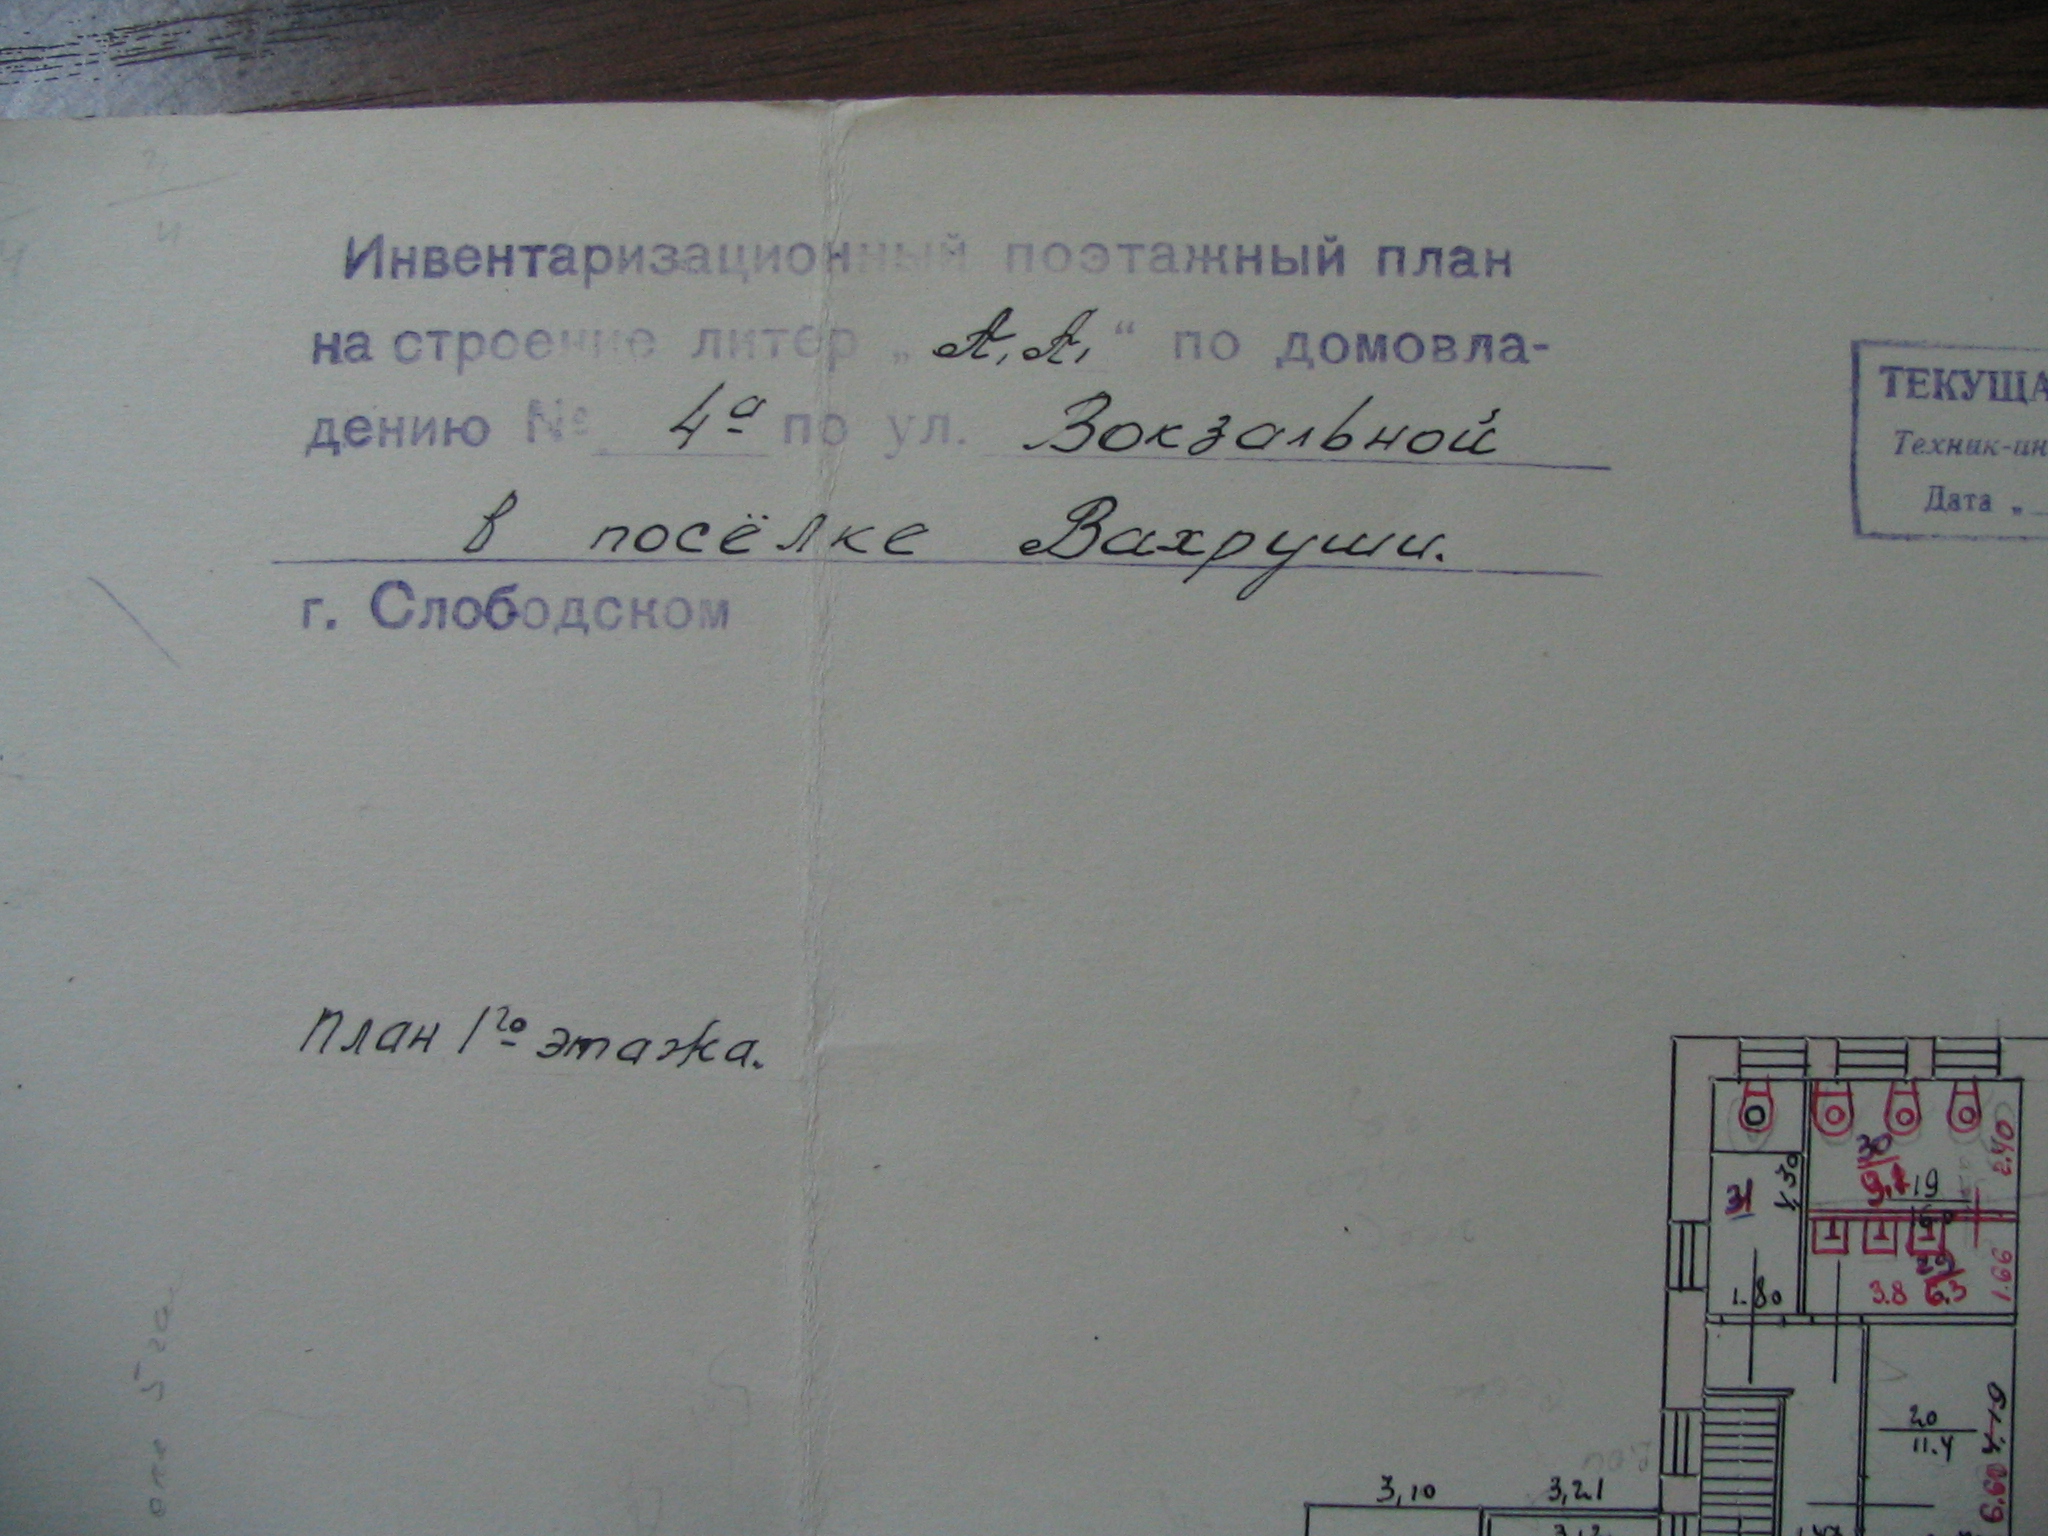 Инвентаризационный поэтажный план
на строение литер „А, А₁“ по домовла-
дению № 4а по ул. Вокзальной
в посёлке Вахруши.
г. Слободском
ТЕКУЩА
Техник-ин
Дата „
План 1го этажа.
30
9,7
19
2.40
31
4.30
1.80
29
3.8 6.3
1.66
20
11.4
4.19
6.60
3,10 3,21